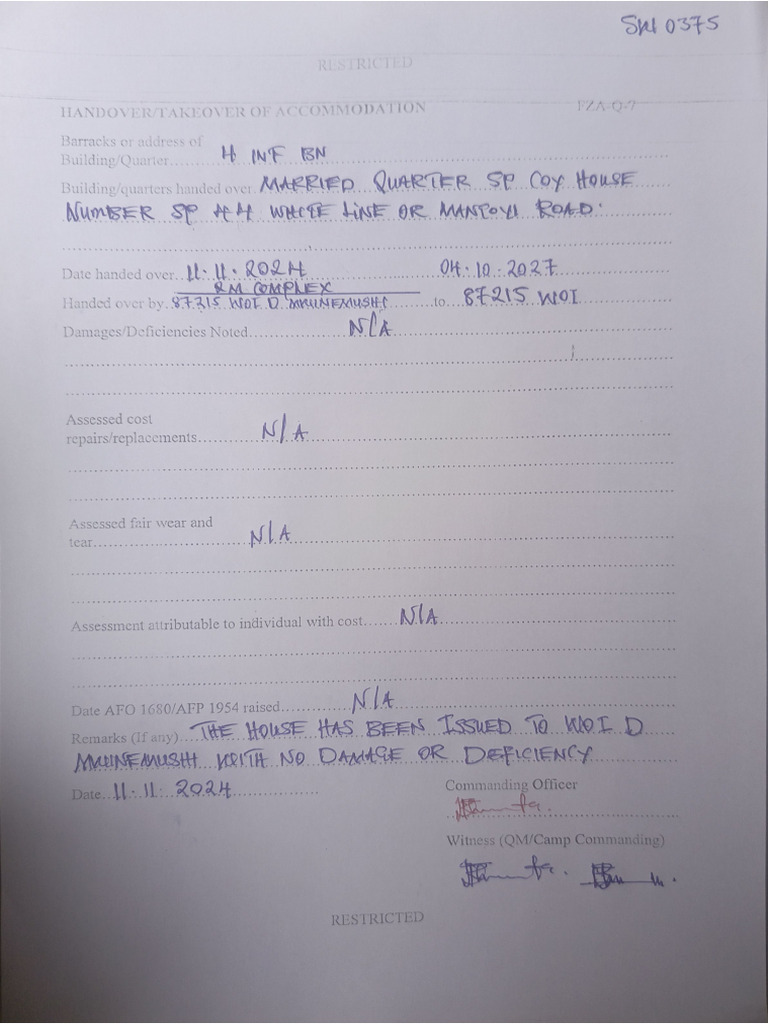 SW 0375
RESTRICTED
HANDOVER/TAKEOVER OF ACCOMMODATION FZA-Q-7
Barracks or address of
Building/Quarter............ 4 INF BN
Building/quarters handed over. MARRIED QUARTER SP COY HOUSE
NUMBER SP 44 WHITE LINE OR ROAD.
Date handed over.. 11.11.2024 04.10.2027
RM COMPLEX
Handed over by. 87215 WOI D MWINEMUSHI to 87215 WOI
Damages/Deficiencies Noted............ N/A
Assessed cost
repairs/replacements............ N/A
Assessed fair wear and
tear............ N/A
Assessment attributable to individual with cost....... N/A
Date AFO 1680/AFP 1954 raised............ N/A
Remarks (If any).. THE HOUSE HAS BEEN ISSUED TO WOI D
MWINEMUSHI WITH NO DAMAGE OR DEFICIENCY
Date.. 11.11.2024
Commanding Officer
Witness (QM/Camp Commanding)
RESTRICTED